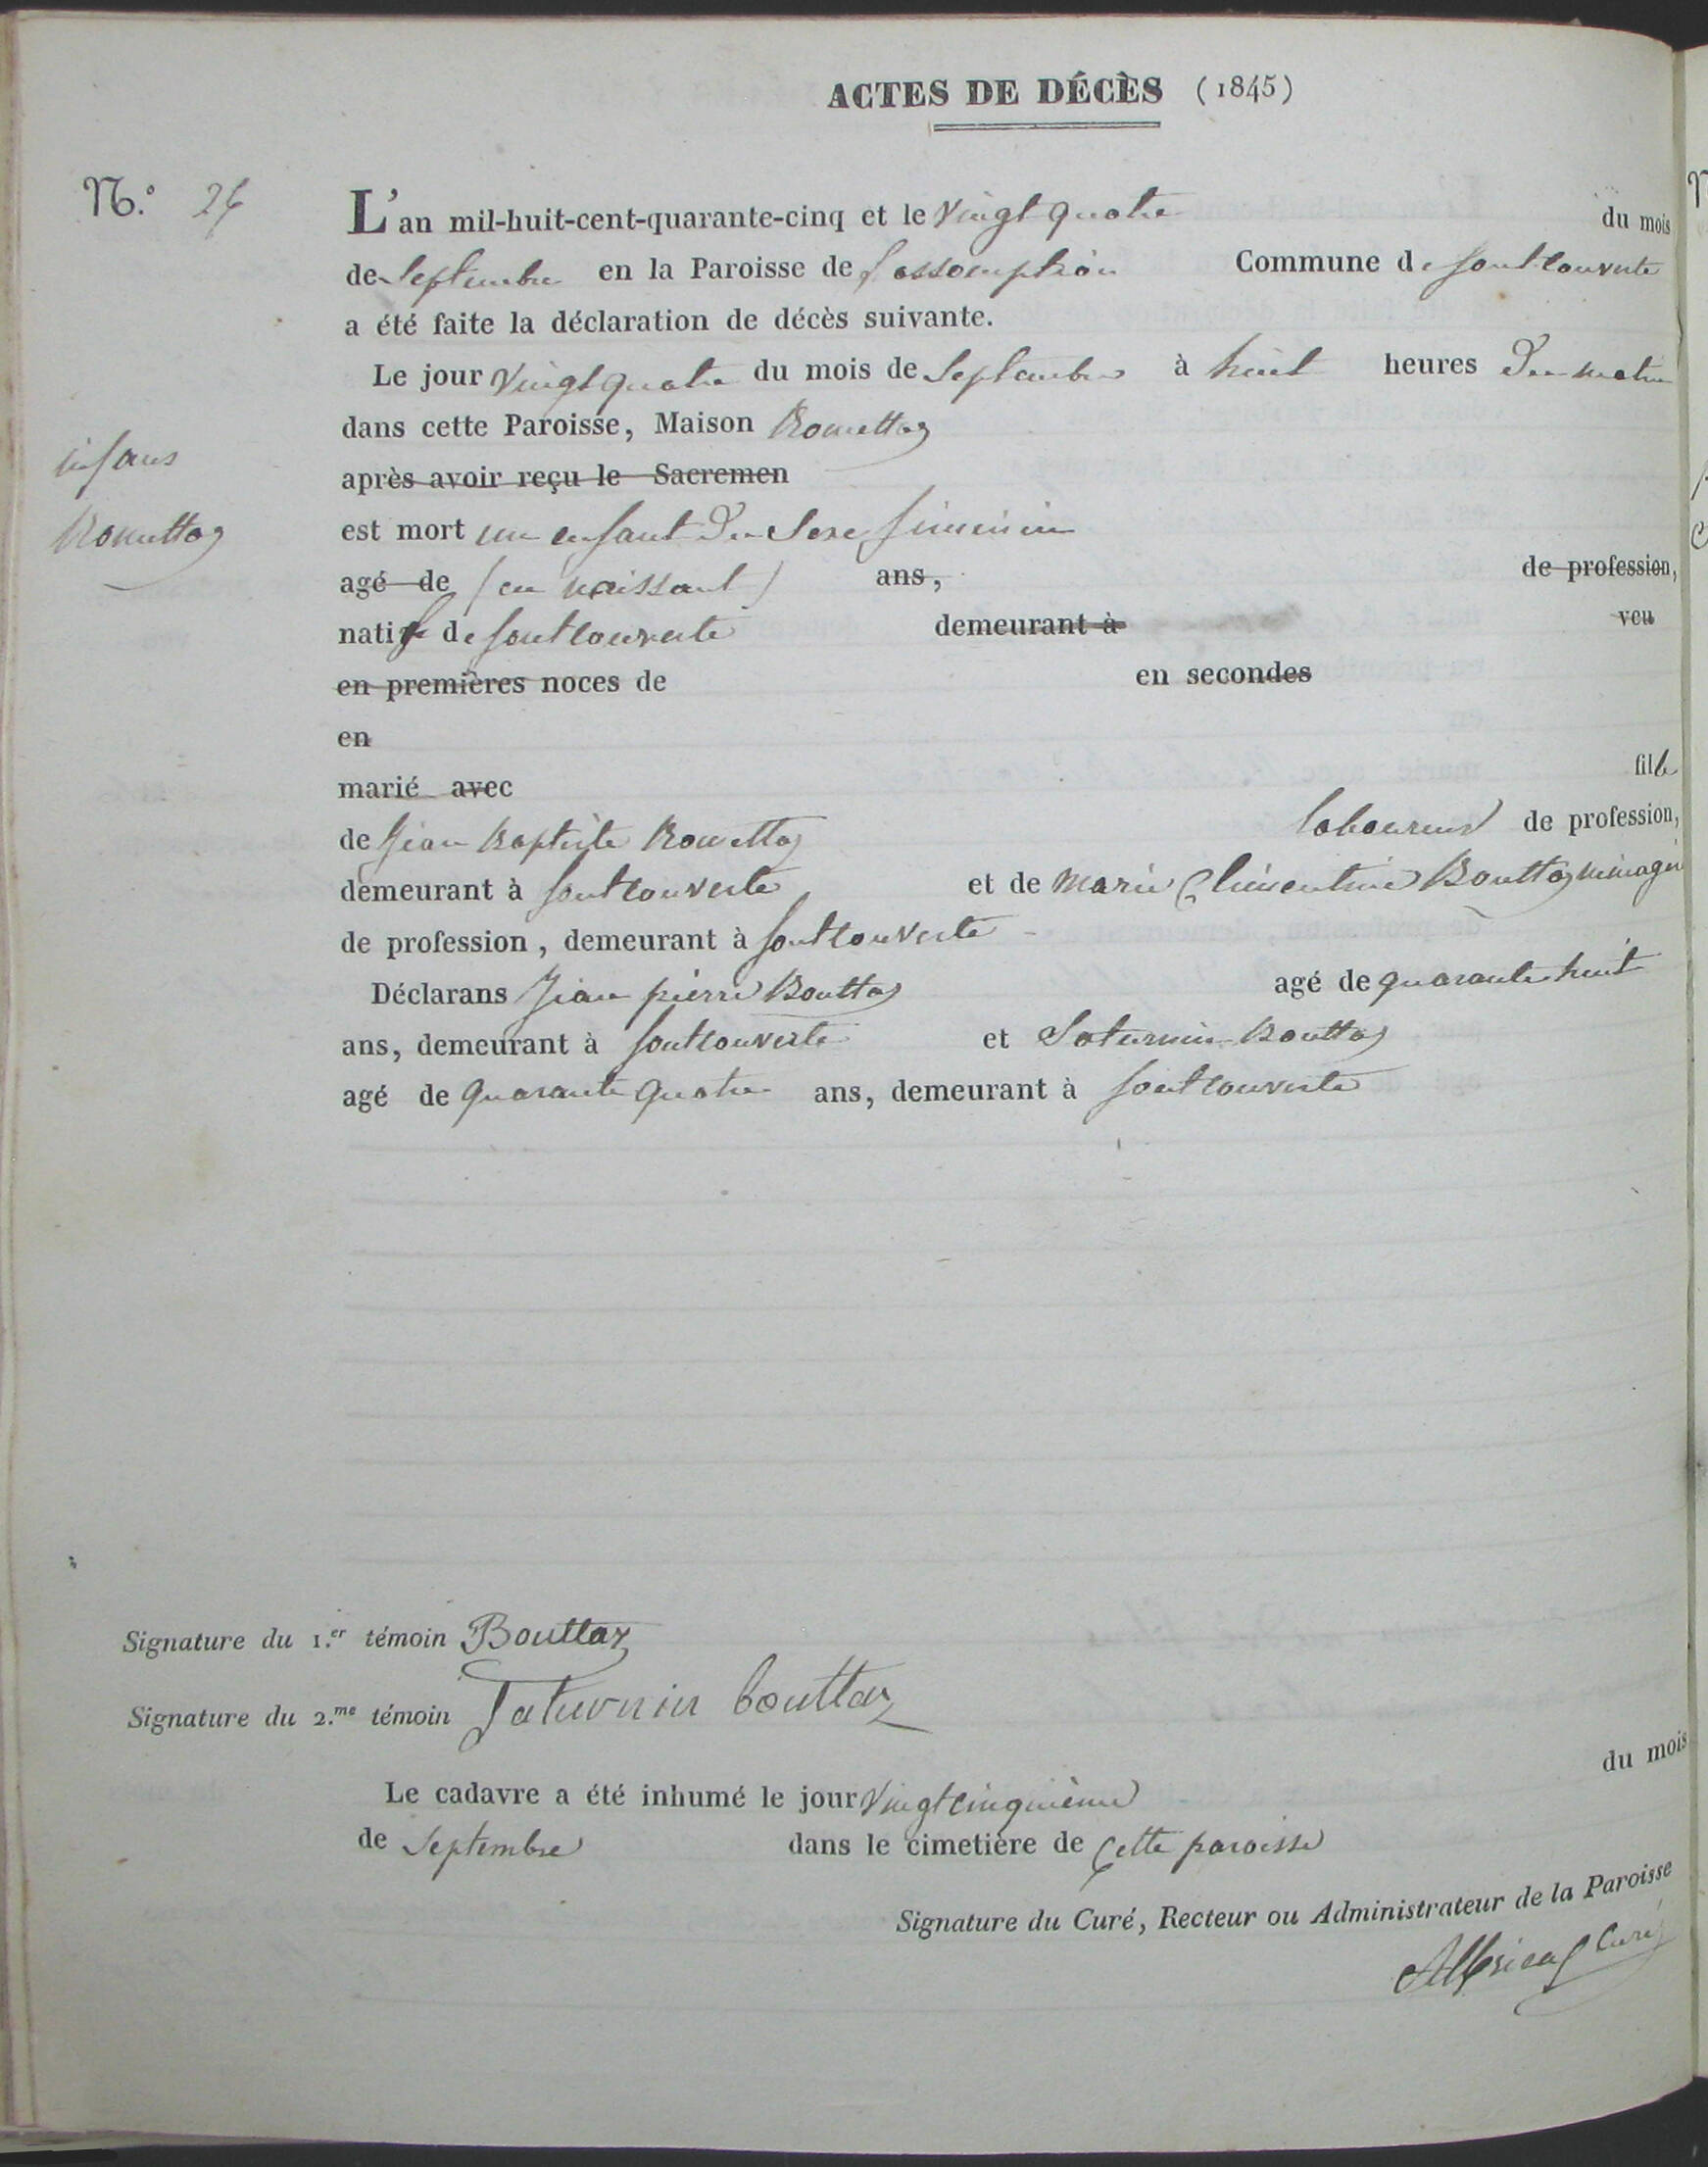 ACTES DE DÉCÈS (1845)
N.º 26
L'an mil-huit-cent-quarante-cinq et le vingt quatre du mois
de Septembre en la Paroisse de l'assomption Commune de fontcouverte
a été faite la déclaration de décès suivante.
Le jour vingt quatre du mois de Septembre à huit heures du matin
dans cette Paroisse, Maison Rouettaz
après avoir reçu le Sacremen
infans
Rouettaz
est mort un enfant du Sexe feminin
agé de (en naissant) ans, de profession,
native de fontcouverte demeurant à veu
en premières noces de en secondes
en
marié avec
fille
de Jean Baptiste Rouettaz laboureur de profession,
demeurant à fontcouverte et de Marie Clementine Bouttaz ménagère
de profession, demeurant à fontcouverte
Déclarans Jean pierre Bouttaz agé de quarante huit
ans, demeurant à fontcouverte et Saturnin Bouttaz
agé de quarante quatre ans, demeurant à fontcouverte
Signature du 1.er témoin Bouttaz
Signature du 2.me témoin Saturnin bouttaz
Le cadavre a été inhumé le jour vingt cinquième du mois
de Septembre dans le cimetière de Cette paroisse
Signature du Curé, Recteur ou Administrateur de la Paroisse
Curé